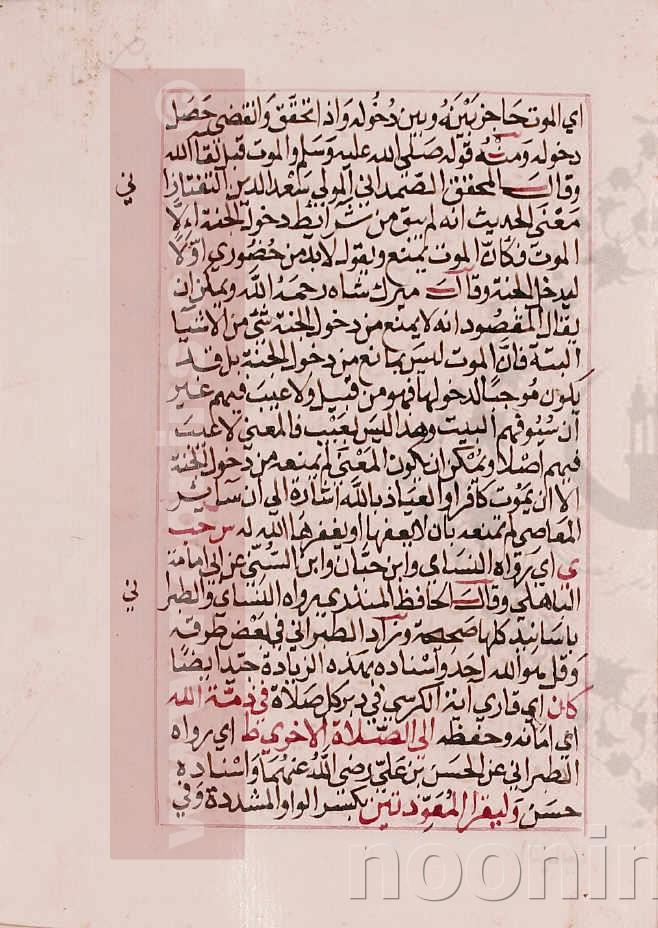 اي الموت حاجز بينه وبين دخوله واذا تحقق وانقضى حصل
دخوله ومنه قوله صلى الله عليه وسلم والموت قبل لقاء الله
وقال المحقق الصمداني المولى سعد الدين التفتازا
ني
معنى الحديث انه لم يبق من شرائط دخول الجنة الا
الموت فكان الموت يمنع ويقول لابد من حضوري اولا
ليدخل الجنة وقال ميرك شاه رحمه الله ويمكن ان
يقال المقصود انه لا يمنع من دخول الجنة شئ من الاشيا
البتة فان الموت ليس بمانع من دخول الجنة بل قد
يكون موجبا لدخولها فهو من قبيل ولا عيب فيهم غير
ان سيوفهم البيت وهذا ليس بعيب فالمعنى لا عيب
فيهم اصلا ويمكن ان يكون المعنى لم يمنعه من دخول الجنة
الا ان يموت كافرا والعياذ بالله اشارة الى ان سائر
المعاصي لم تمنعه بان لا يفعلها او يغفرها الله له س حب
ي اي رواه النسائى وابن حبان وابن السني عن ابى امامة
الباهلي وقال الحافظ المنذري رواه النسائى والطبرا
ني
باسانيد كلها صحيحة وزاد الطبراني في بعض طرقه
وقل هو الله احد واسناده بهذه الزيادة جيد ايضا
كان اي قاري آية الكرسي في دبر كل صلاة في ذمة الله
اي امانه وحفظه الى الصلاة الاخرى ط اي رواه
الطبراني عن الحسن بن علي رضى الله عنهما واسناده
حسن وليقرا المعوذتين بكسر الواو المشددة وفي
www.
noonin